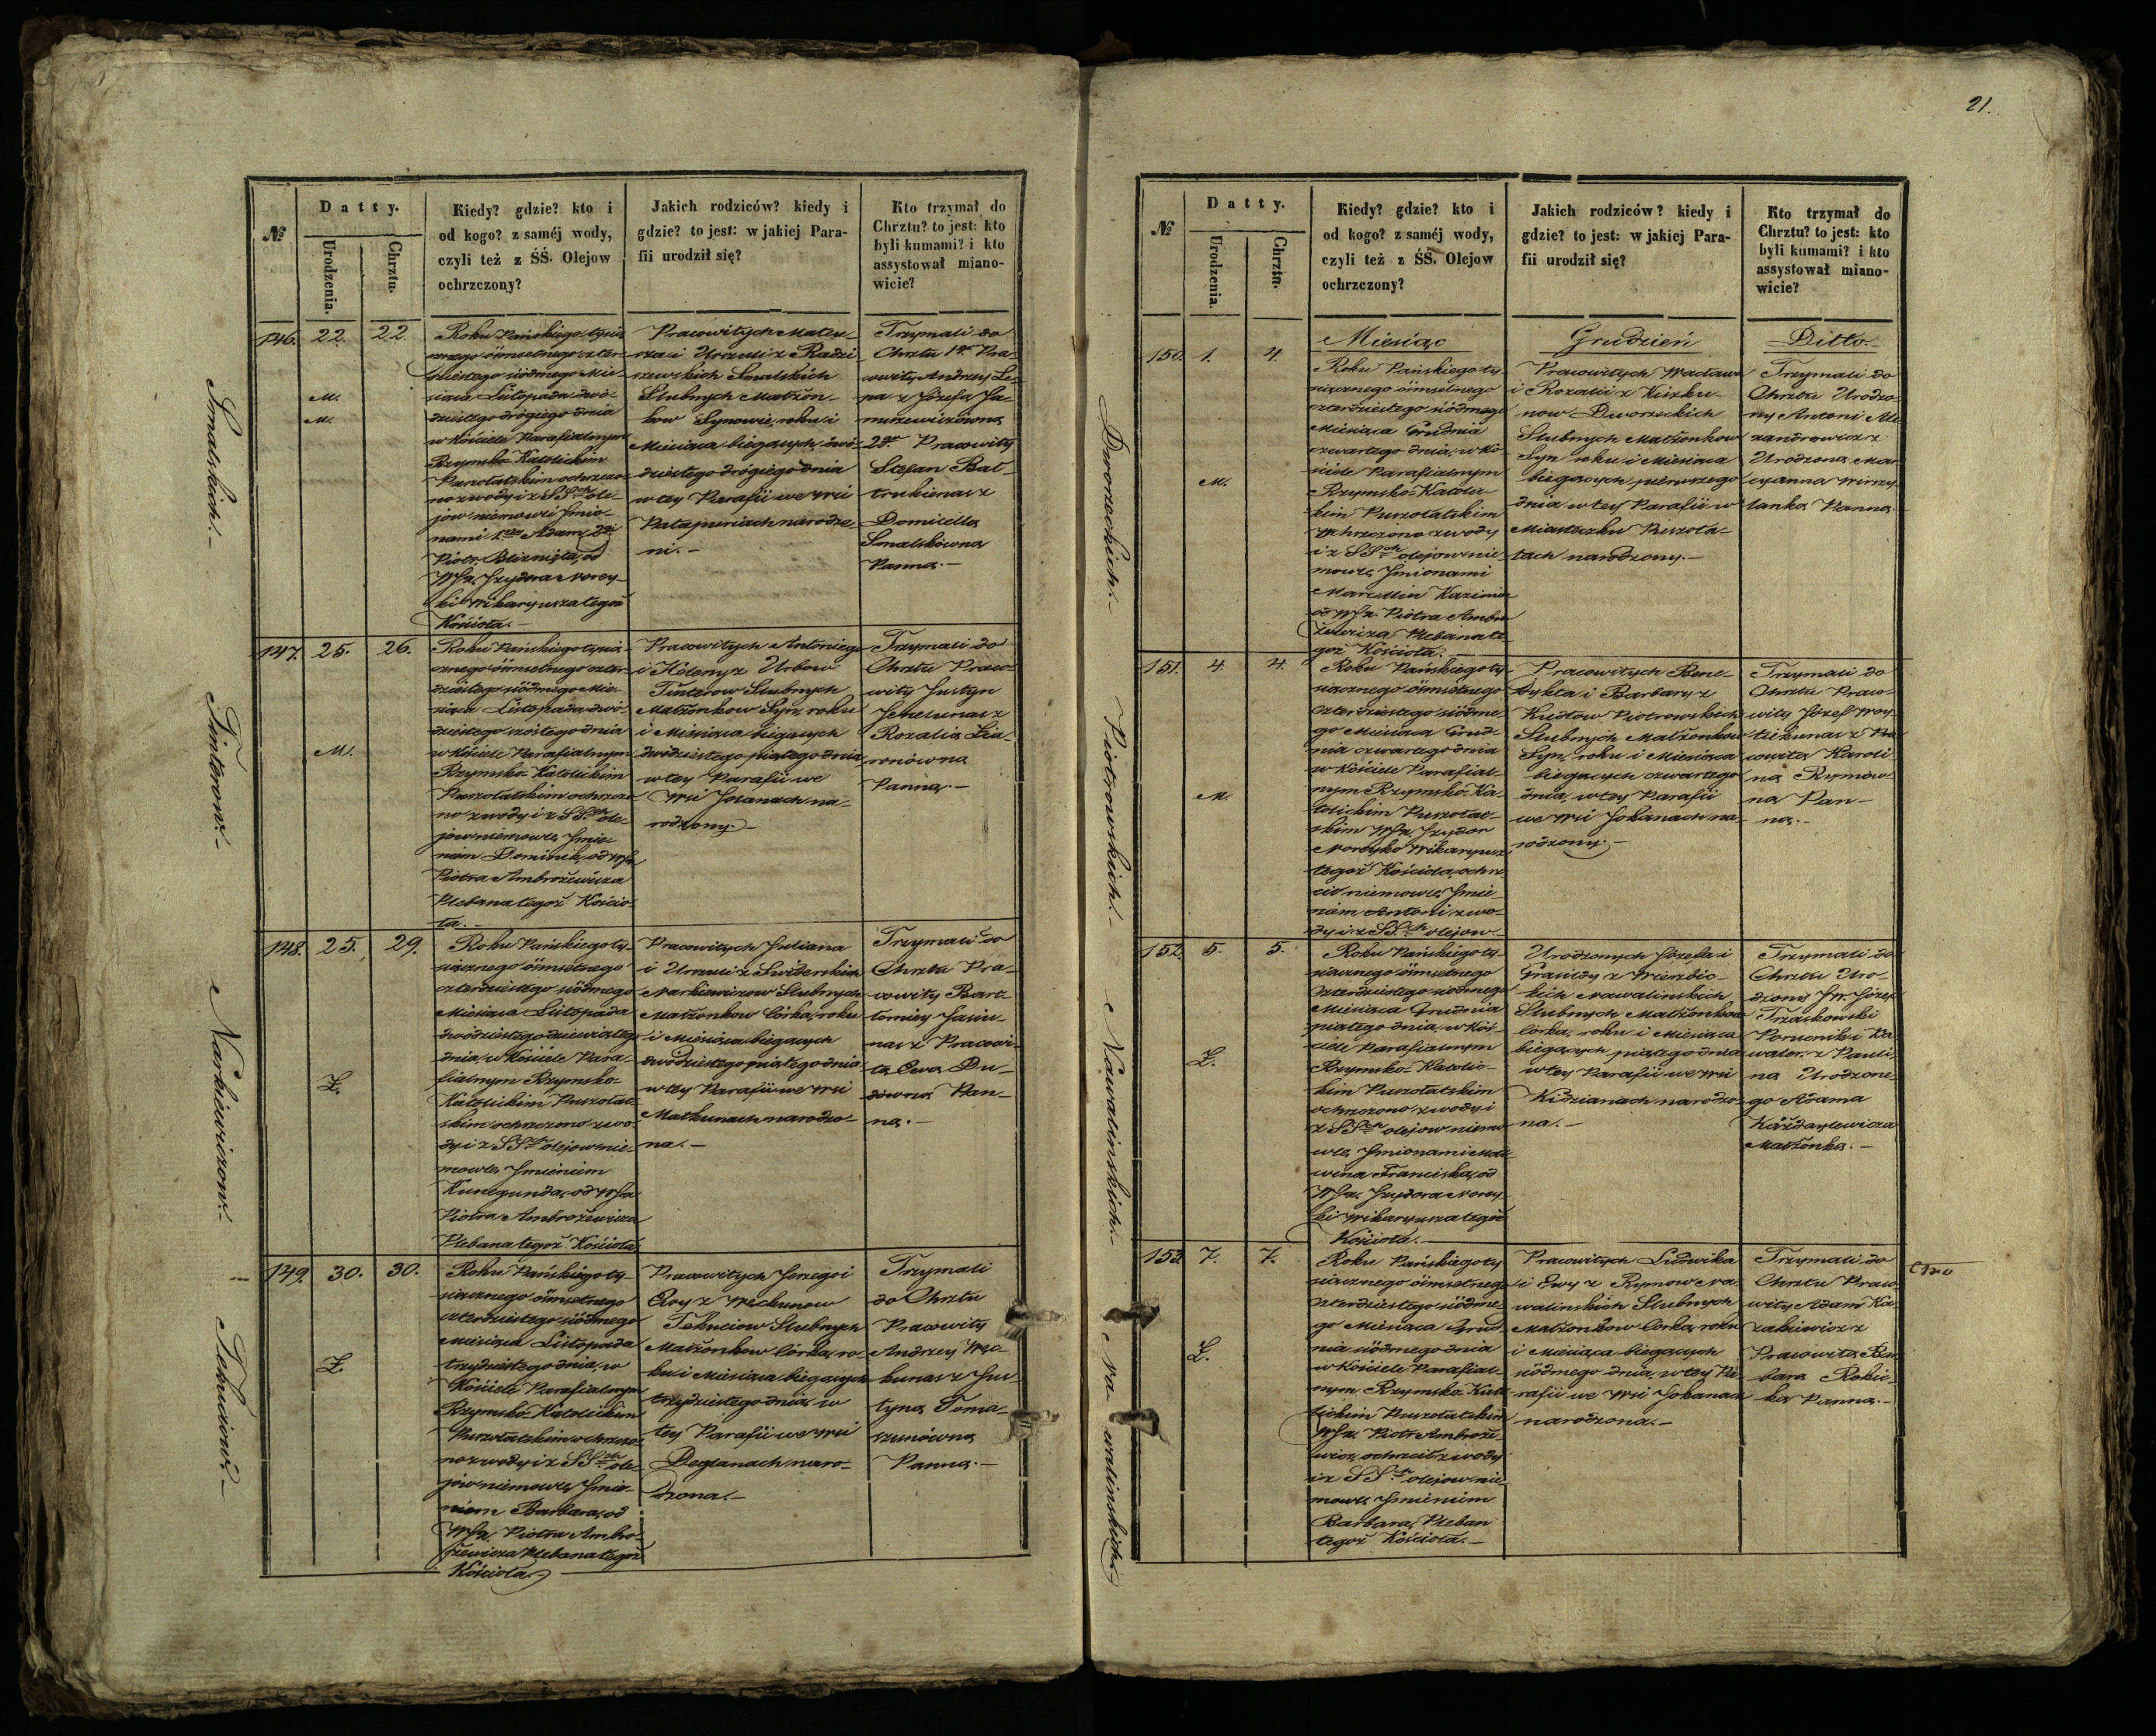 21.
№
Datty.
Urodzenia.
Chrztu.
Kiedy? gdzie? kto i
od kogo? z saméj wody,
czyli też z ŚŚ. Olejow
ochrzczony?
Jakich rodziców? kiedy i
gdzie? to jest: w jakiej Para-
fii urodził się?
Kto trzymał do
Chrztu? to jest: kto
byli kumami? i kto
assystował miano-
wicie?
Smalskich.-
146. 22. 22.
M.
M.
Roku Pańskiego tysią
cznego ósmsetnego czter-
dziestego siódmego Mie-
siąca Listopada dwó-
dziestego drógiego dnia
w Kościele Parafialnym
Rzymsko-Katolickim
Puszołatskim ochrzczo-
no z wody i z SSch ole-
jow niemowle Jmio-
nami 1. Adam, 2.
Piotr, Bliznięta, od
WJx. Jzydora Norey-
ki Wikaryusza tegoż
Kościoła.-
Pracowitych Mateu-
sza i Urszuli z Radzi-
szewskich Smalskich
Slubnych Małżon-
kow Synowie, roku i
Miesiąca bieżących, dwó-
dziestego drógiego dnia
w tey Parafii we Wsi
Patapuniach narodze
ni.-
Trzymali do
Chrztu 1go Pra-
cowity Andrzey Le-
pa z Józefą Ja-
nuszewiczówną
2go Pracowity
Stefan Bal-
trukienas z
Domicellą
Smalskówną
Panną.-
Tinterow.-
147. 25. 26.
M.
Roku Pańskiego tysią
cznego ósmsetnego czter-
dziestego siódmego Mie-
siąca Listopada dwó-
dziestego szóstego dnia
w Kościele Parafialnym
Rzymsko-Katolickim
Puszołatskim ochrzczo
no z wody i z SSch ole-
jow niemowle Jmie-
niem Dominik, od WJx
Piotra Ambrożewicza
Plebana tegoż Kościo-
ła.-
Pracowitych Antoniego
i Heleny z Urbow
Tinterow Slubnych
Małżonkow Syn, roku
i Miesiąca bieżących
dwódziestego piątego dnia
w tey Parafii we
Wsi Joxanach na-
rodzony.-
Trzymali do
Chrztu Praco-
wity Justyn
Rozalią
Panną.-
Narkiewiczow.-
148. 25. 29.
Ż.
Roku Pańskiego ty-
siącznego ósmsetnego
czterdziestego siódmego
Miesiąca Listopada
dwódziestego dziewiątego
dnia, w Kościele Para-
fialnym Rzymsko-
Katolickim Puszołat-
skim ochrzczono z wo-
dy i z SSch olejow nie-
mowle Jmieniem
Kunegunda, od WJx
Piotra Ambrożewicza
Plebana tegoż Kościoła
Pracowitych Juliana
i Urszuli z Swiderskich
Narkiewiczow Slubnych
Małżonkow Córka, roku
i Miesiąca bieżących
dwódziestego piątego dnia
w tey Parafii we Wsi
Matkunach narodzo-
na.-
Trzymali do
Chrztu Pra-
cowity Bart-
łomiey Jasiu-
nas z Pracowi-
tą Ewą Du-
dówną Pan-
ną.-
Tekuciow.-
149. 30. 30.
Ż.
Roku Pańskiego ty-
siącznego ósmsetnego
czterdziestego siódmego
Miesiąca Listopada
trzydziestego dnia, w
Kościele Parafialnym
Rzymsko-Katolickim
Puszołatskim ochrzczo
no z wody i z SSch ole-
jow niemowle Jmie-
niem Barbara, od
WJx. Piotra Ambro-
żewicza Plebana tegoż
Kościoła.
Pracowitych Jerzego i
Ewy z Weckunow
Tekuciow Slubnych
Małżonkow Córka, ro-
ku i Miesiąca bieżących
trzydziestego dnia, w
tey Parafii we Wsi
Deglanach naro-
dzona.-
Trzymali
do Chrztu
Pracowity
Andrzey
kunas z Jus-
tyną Toma-
szunówną
Panną.-
№
Datty.
Urodzenia.
Chrztu.
Kiedy? gdzie? kto i
od kogo? z saméj wody,
czyli też z ŚŚ. Olejow
ochrzczony?
Jakich rodziców? kiedy i
gdzie? to jest: w jakiej Para-
fii urodził się?
Kto trzymał do
Chrztu? to jest: kto
byli kumami? i kto
assystował miano-
wicie?
Miesiąc Grudzień Ditto
Dworzeckich.-
150. 1. 4.
M.
Roku Pańskiego ty-
siącznego ósmsetnego
czterdziestego siódmego
Miesiąca Grudnia
czwartego dnia, w Ko-
ściele Parafialnym
Rzymsko-Katolic-
kim Puszołatskim
ochrzczono z wody
i z SSch olejow nie
mowle Jmionami
Marcellin Kazimierz
od WJx. Piotra Ambro
żewicza Plebana te-
goż Kościoła.-
Pracowitych Wacława
i Rozalii z Kuszku-
now Dworzeckich
Slubnych Małżonkow
Syn roku i Miesiąca
bieżących pierwszego
dnia w tey Parafii w
Miasteczku Puszoła-
tach narodzony.-
Trzymali do
Chrztu Urodzo-
ny Antoni Ale
xandrowicz z
Urodzoną Mar
cyanną
Panną.
Piotrowskich.-
151. 4. 4.
M.
Roku Pańskiego ty-
siącznego ósmsetnego
czterdziestego siódme-
go Miesiąca Grud-
nia czwartego dnia
w Kościele Parafial-
nym Rzymsko-Ka-
tolickim Puszołat-
skim WJx. Jzydor
Noreyko Wikaryusz
tegoż Kościoła, ochrz
cił niemowle Jmie-
niem Antoni z wo-
dy i z SSch olejow.-
Pracowitych Bene-
dykta i Barbary z
Kudłow Piotrowskich
Slubnych Małżonkow
Syn, roku i Miesiąca
bieżących czwartego
dnia, w tey Parafii
we Wsi Jokanach na-
rodzony.-
Trzymali do
Chrztu Praco-
wity Józef Woy-
z Pra
cowitą Karoli-
ną Rymów-
ną Pan-
ną.-
Nawalinskich.-
152. 5. 5.
Ż.
Roku Pańskiego ty-
siącznego ósmsetnego
czterdziestego siódmego
Miesiąca Grudnia
piątego dnia, w Koś-
ciele Parafialnym
Rzymsko-Katolic-
kim Puszołatskim
ochrzczono z wody i
z SSch olejow niemo
wle Jmionami Mal
wina Franciszka, od
WJx. Jzydora Norey-
ki Wikaryusza tegoż
Kościoła.-
Urodzonych Józefa i
z Wierzbic-
kich Nawalinskich
Slubnych Małżonkow
Córka, roku i Miesiąca
bieżących piątego dnia
w tey Parafii we Wsi
Kidzianach narodzo-
na.-
Trzymali do
Chrztu Uro-
dzony Józef
Trzaskowski
Porucznik i Ka
waler z Pauli-
ną Urodzone-
go Adama
Małżonką.-
Nawalinskich.
153. 7. 7.
Ż.
Roku Pańskiego ty
siącznego ósmsetnego
czterdziestego siódme-
go Miesiąca Grud-
nia siódmego dnia
w Kościele Parafial-
nym Rzymsko-Kato
lickim Puszołatskim
WJx. Piotr Ambroże-
wicz, ochrzcił z wody
i z SSch olejow nie-
mowle Jmieniem
Barbara, Pleban
tegoż Kościoła.-
Pracowitych Ludwika
i Ewy z Rymow Na-
walinskich Slubnych
Małżonkow Córka, roku
i Miesiąca bieżących
siódmego dnia, w tey Pa-
rafii we Wsi Jokanach
narodzona.-
Trzymali do
Chrztu Praco
wity Adam Ka-
zakiewicz z
Pracowitą Bar
barą Rokic-
ką Panną.-